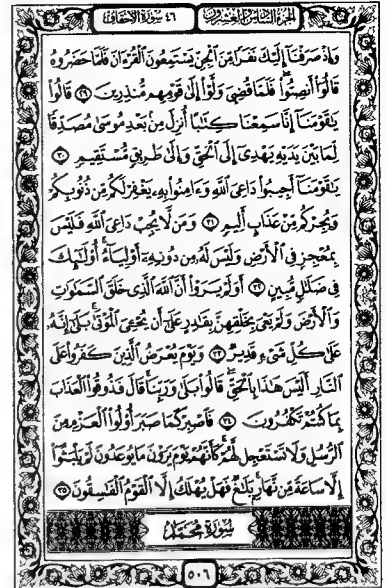 الجزء السادس والعشرون
٤٦ سورة الأحقاف
وَإِذْ صَرَفْنَآ إِلَيْكَ نَفَرًا مِّنَ ٱلْجِنِّ يَسْتَمِعُونَ ٱلْقُرْءَانَ فَلَمَّا حَضَرُوهُ
قَالُوٓا۟ أَنصِتُوا۟ ۖ فَلَمَّا قُضِىَ وَلَّوْا۟ إِلَىٰ قَوْمِهِم مُّنذِرِينَ ٢٩ قَالُوا۟
يَٰقَوْمَنَآ إِنَّا سَمِعْنَا كِتَٰبًا أُنزِلَ مِنۢ بَعْدِ مُوسَىٰ مُصَدِّقًا
لِّمَا بَيْنَ يَدَيْهِ يَهْدِىٓ إِلَى ٱلْحَقِّ وَإِلَىٰ طَرِيقٍ مُّسْتَقِيمٍ ٣٠
يَٰقَوْمَنَآ أَجِيبُوا۟ دَاعِىَ ٱللَّهِ وَءَامِنُوا۟ بِهِۦ يَغْفِرْ لَكُم مِّن ذُنُوبِكُمْ
وَيُجِرْكُم مِّنْ عَذَابٍ أَلِيمٍ ٣١ وَمَن لَّا يُجِبْ دَاعِىَ ٱللَّهِ فَلَيْسَ
بِمُعْجِزٍ فِى ٱلْأَرْضِ وَلَيْسَ لَهُۥ مِن دُونِهِۦٓ أَوْلِيَآءُ ۚ أُو۟لَٰٓئِكَ
فِى ضَلَٰلٍ مُّبِينٍ ٣٢ أَوَلَمْ يَرَوْا۟ أَنَّ ٱللَّهَ ٱلَّذِى خَلَقَ ٱلسَّمَٰوَٰتِ
وَٱلْأَرْضَ وَلَمْ يَعْىَ بِخَلْقِهِنَّ بِقَٰدِرٍ عَلَىٰٓ أَن يُحْۦِىَ ٱلْمَوْتَىٰ ۚ بَلَىٰٓ إِنَّهُۥ
عَلَىٰ كُلِّ شَىْءٍ قَدِيرٌ ٣٣ وَيَوْمَ يُعْرَضُ ٱلَّذِينَ كَفَرُوا۟ عَلَى
ٱلنَّارِ أَلَيْسَ هَٰذَا بِٱلْحَقِّ ۖ قَالُوا۟ بَلَىٰ وَرَبِّنَا ۚ قَالَ فَذُوقُوا۟ ٱلْعَذَابَ
بِمَا كُنتُمْ تَكْفُرُونَ ٣٤ فَٱصْبِرْ كَمَا صَبَرَ أُو۟لُوا۟ ٱلْعَزْمِ مِنَ
ٱلرُّسُلِ وَلَا تَسْتَعْجِل لَّهُمْ ۚ كَأَنَّهُمْ يَوْمَ يَرَوْنَ مَا يُوعَدُونَ لَمْ يَلْبَثُوٓا۟
إِلَّا سَاعَةً مِّن نَّهَارٍۭ ۚ بَلَٰغٌ ۚ فَهَلْ يُهْلَكُ إِلَّا ٱلْقَوْمُ ٱلْفَٰسِقُونَ ٣٥
سورة محمد
٥٠٦